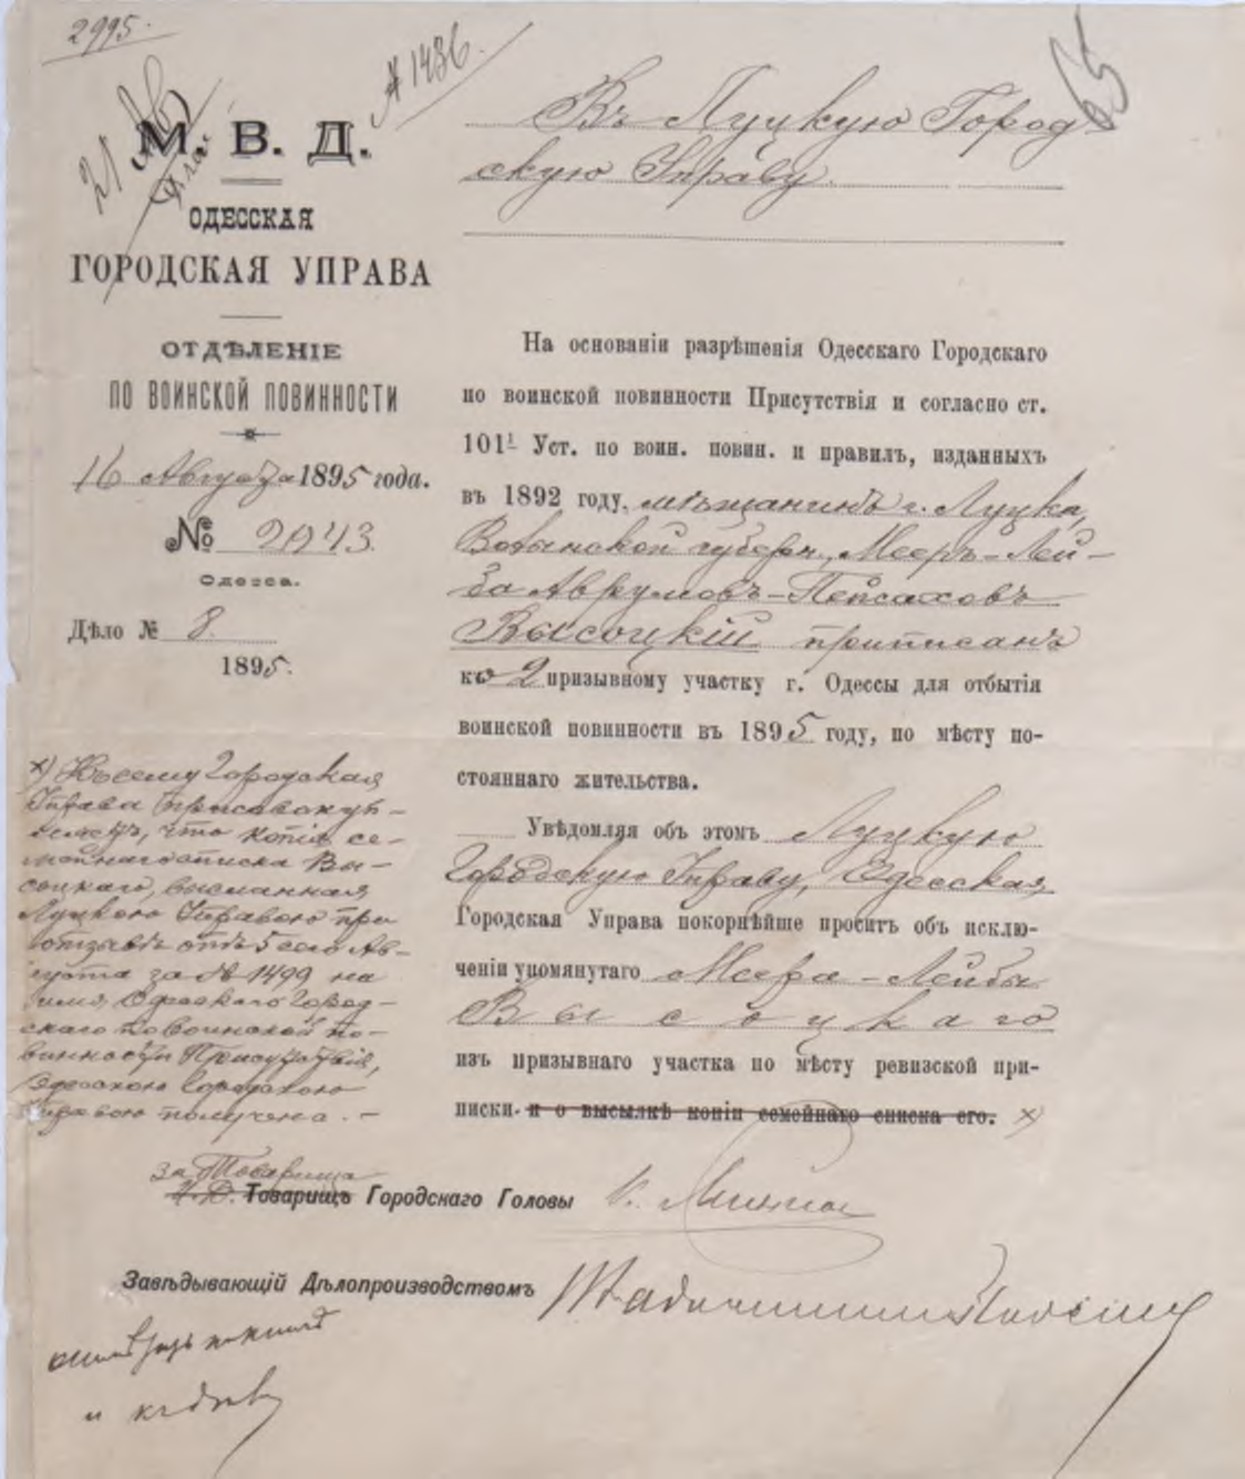 2995.
№ 1486.
65
21 Авг
М. В. Д.
ОДЕССКАЯ
ГОРОДСКАЯ УПРАВА
ОТДѢЛЕНІЕ
ПО ВОИНСКОЙ ПОВИННОСТИ
16 Августа 1895 года.
№ 2943.
Одесса.
Дѣло № 8.
1895.
Въ Луцкую Город-
скую Управу.
На основаніи разрѣшенія Одесскаго Городскаго
по воинской повинности Присутствія и согласно ст.
101¹ Уст. по воин. повин. и правилъ, изданныхъ
въ 1892 году, мѣщанинъ г. Луцка,
Волынской губерн., Мееръ-Лей-
ба Аврумовъ-Пейсаховъ
Высоцкій приписанъ
къ 2 призывному участку г. Одессы для отбытія
воинской повинности въ 1895 году, по мѣсту по-
стояннаго жительства.
Увѣдомляя объ этомъ Луцкую
Городскую Управу, Одесская
Городская Управа покорнѣйше проситъ объ исклю-
ченіи упомянутаго Меера-Лейбы
Высоцкаго
изъ призывнаго участка по мѣсту ревизской при-
писки. и о высылкѣ копіи семейнаго списка его. х)
х) Къ сему Городская
Управа присовокуп-
ляетъ, что копія се-
мейнаго списка Вы-
соцкаго, высланная
Луцкою Управою при
отзывѣ отъ 5 сего Ав-
густа за № 1499 на
имя Одесскаго Город-
скаго по воинской по-
винности Присутствія,
Одесскою Городскою
Управою получена. -
за Товарища
И. Д. Товарищъ Городскаго Головы
Завѣдывающій Дѣлопроизводствомъ